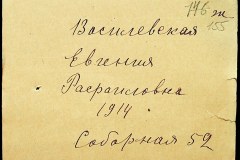 146 ж
155
Василевская
Евгения
Рафаиловна
1914
Соборная 52